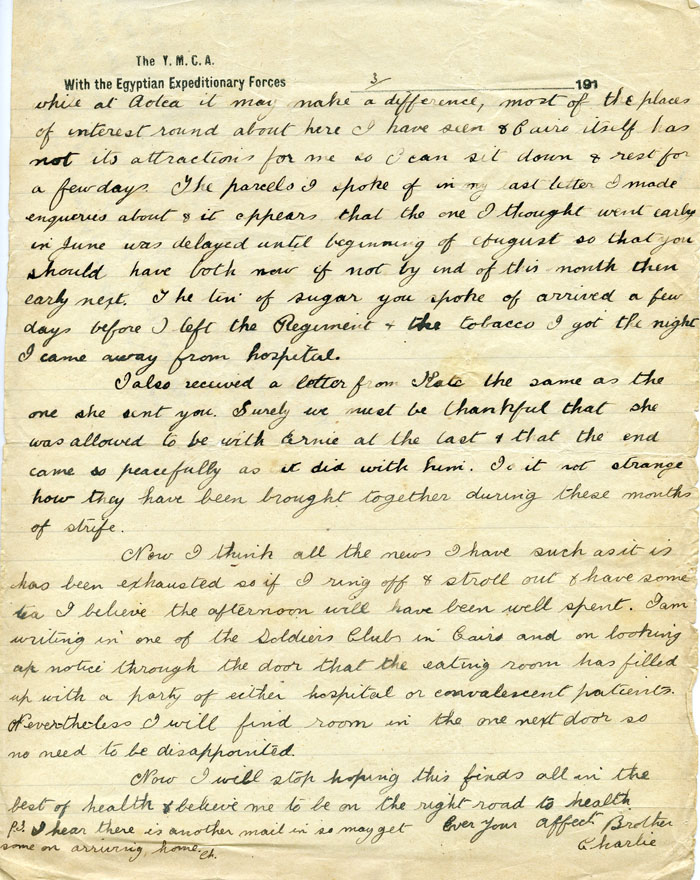 The Y. M. C. A.
With the Egyptian Expeditionary Forces 3/ 191
while at Aotea it may make a difference, most of the places
of interest round about here I have seen & Cairo itself has
not its attractions for me so I can sit down & rest for
a few days. The parcels I spoke of in my last letter I made
enqueries about & it appears that the one I thought went early
in June was delayed until beginning of August so that you
should have both now if not by end of this month then
early next. The tin of sugar you spoke of arrived a few
days before I left the Regiment & the tobacco I got the night
I came away from hospital.
I also received a letter from Kate the same as the
one she sent you. Surely we must be thankful that she
was allowed to be with Ernie at the last & that the end
came so peacefully as it did with him. Is it not strange
how they have been brought together during these months
of strife.
Now I think all the news I have such as it is
has been exhausted so if I ring off & stroll out & have some
tea I believe the afternoon will have been well spent. I am
writing in one of the Soldiers Clubs in Cairo and on looking
up notice through the door that the eating room has filled
up with a party of either hospital or convalescent patients.
Nevertheless I will find room in the one next door so
no need to be disappointed.
Now I will stop hoping this finds all in the
best of health & believe me to be on the right road to health
Ever Your Affect Brother
Charlie
P.S. I hear there is another mail in so may get
some on arriving home. Ch.